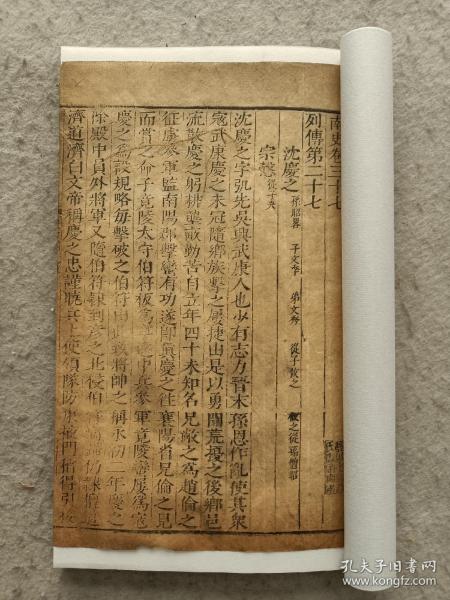 南史卷三十七
列傳第二十七
沈慶之 孫昭畧 子文季 弟文秀 從子攸之 攸之從孫僧昭
宗慤 從子夬
沈慶之字弘先吳興武康人也少有志力晉末孫恩作亂使其衆
寇武康慶之未冠隨鄉族擊之屢捷由是以勇聞荒擾之後鄉邑
流散慶之躬耕壟畝勤苦自立年四十未知名兄敞之爲趙倫之
征虜參軍監南陽郡擊蠻有功遂即眞慶之往襄陽省兄倫之見
而賞之命子竟陵太守伯符板爲寧遠中兵參軍竟陵蠻屢爲寇
慶之爲設規略每擊破之伯符由此致將帥之稱永初二年慶之
除殿中員外將軍又隨伯符隸到彥之北侵伯
濟道濟白文帝稱慶之忠謹曉兵上使領隊防東掖門稍得引接
孔夫子旧书网
www.kongfz.com